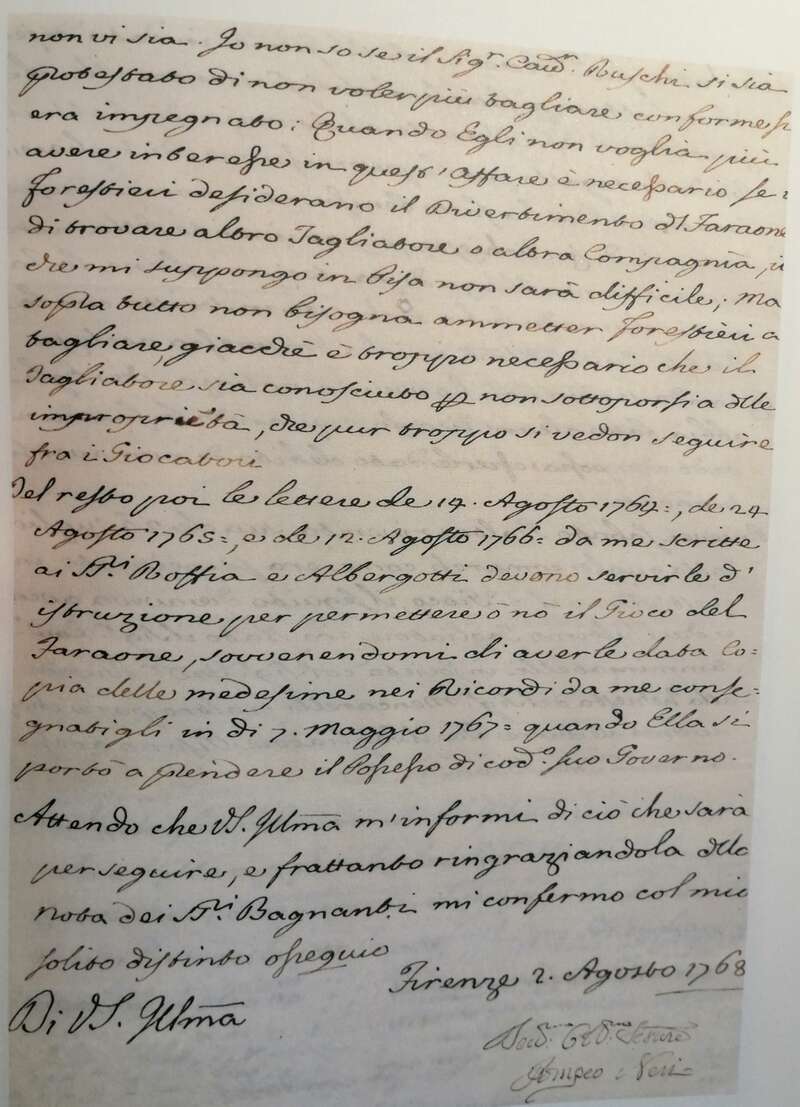 non vi sia. Io non so se il Sigr. Cavr. Ruschi si sia
protestato di non voler più tagliare conforme si
era impegnato; Quando Egli non voglia più
avere interesse in quest'Affare è necessario se i
forestieri desiderano il Divertimento di Faraone
di trovare altro Tagliatore o altra Compagnia, il
che mi suppongo in Pisa non sarà difficile; Ma
sopra tutto non bisogna ammetter forestieri a
tagliare, giacchè è troppo necessario che il
Tagliatore sia conosciuto p non sottoporsi a dlle
improprietà, che pur troppo si vedon seguire
fra i Giocatori
Del resto poi le lettere de 14. Agosto 1764=, de 24
Agosto 1765=, e de 12. Agosto 1766= da me scritte
ai SS.ri Roffia e Albergotti devono servirle d'
istruzione per permettere ò nò il Gioco del
Faraone, sovvenendomi di averle data Co=
pia delle medesime nei Ricordi da me conse=
gnatigli in di 7. Maggio 1767= quando Ella si
portò a prendere il Possesso di cod.o suo Governo.
Attendo che VS. Illma m'informi di ciò che sarà
per seguire, e frattanto ringraziandola dlla
nota dei SS.ri Bagnanti mi confermo col mio
solito distinto ossequio
Firenze 2. Agosto 1768
Di VS. Illma
Pompeo Neri